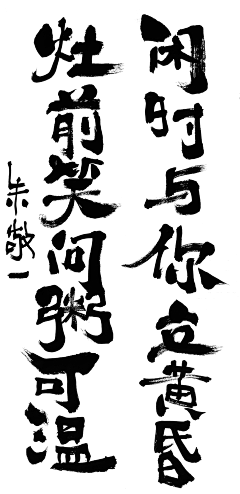 闲时与你立黄昏
灶前笑问粥可温
朱敬一